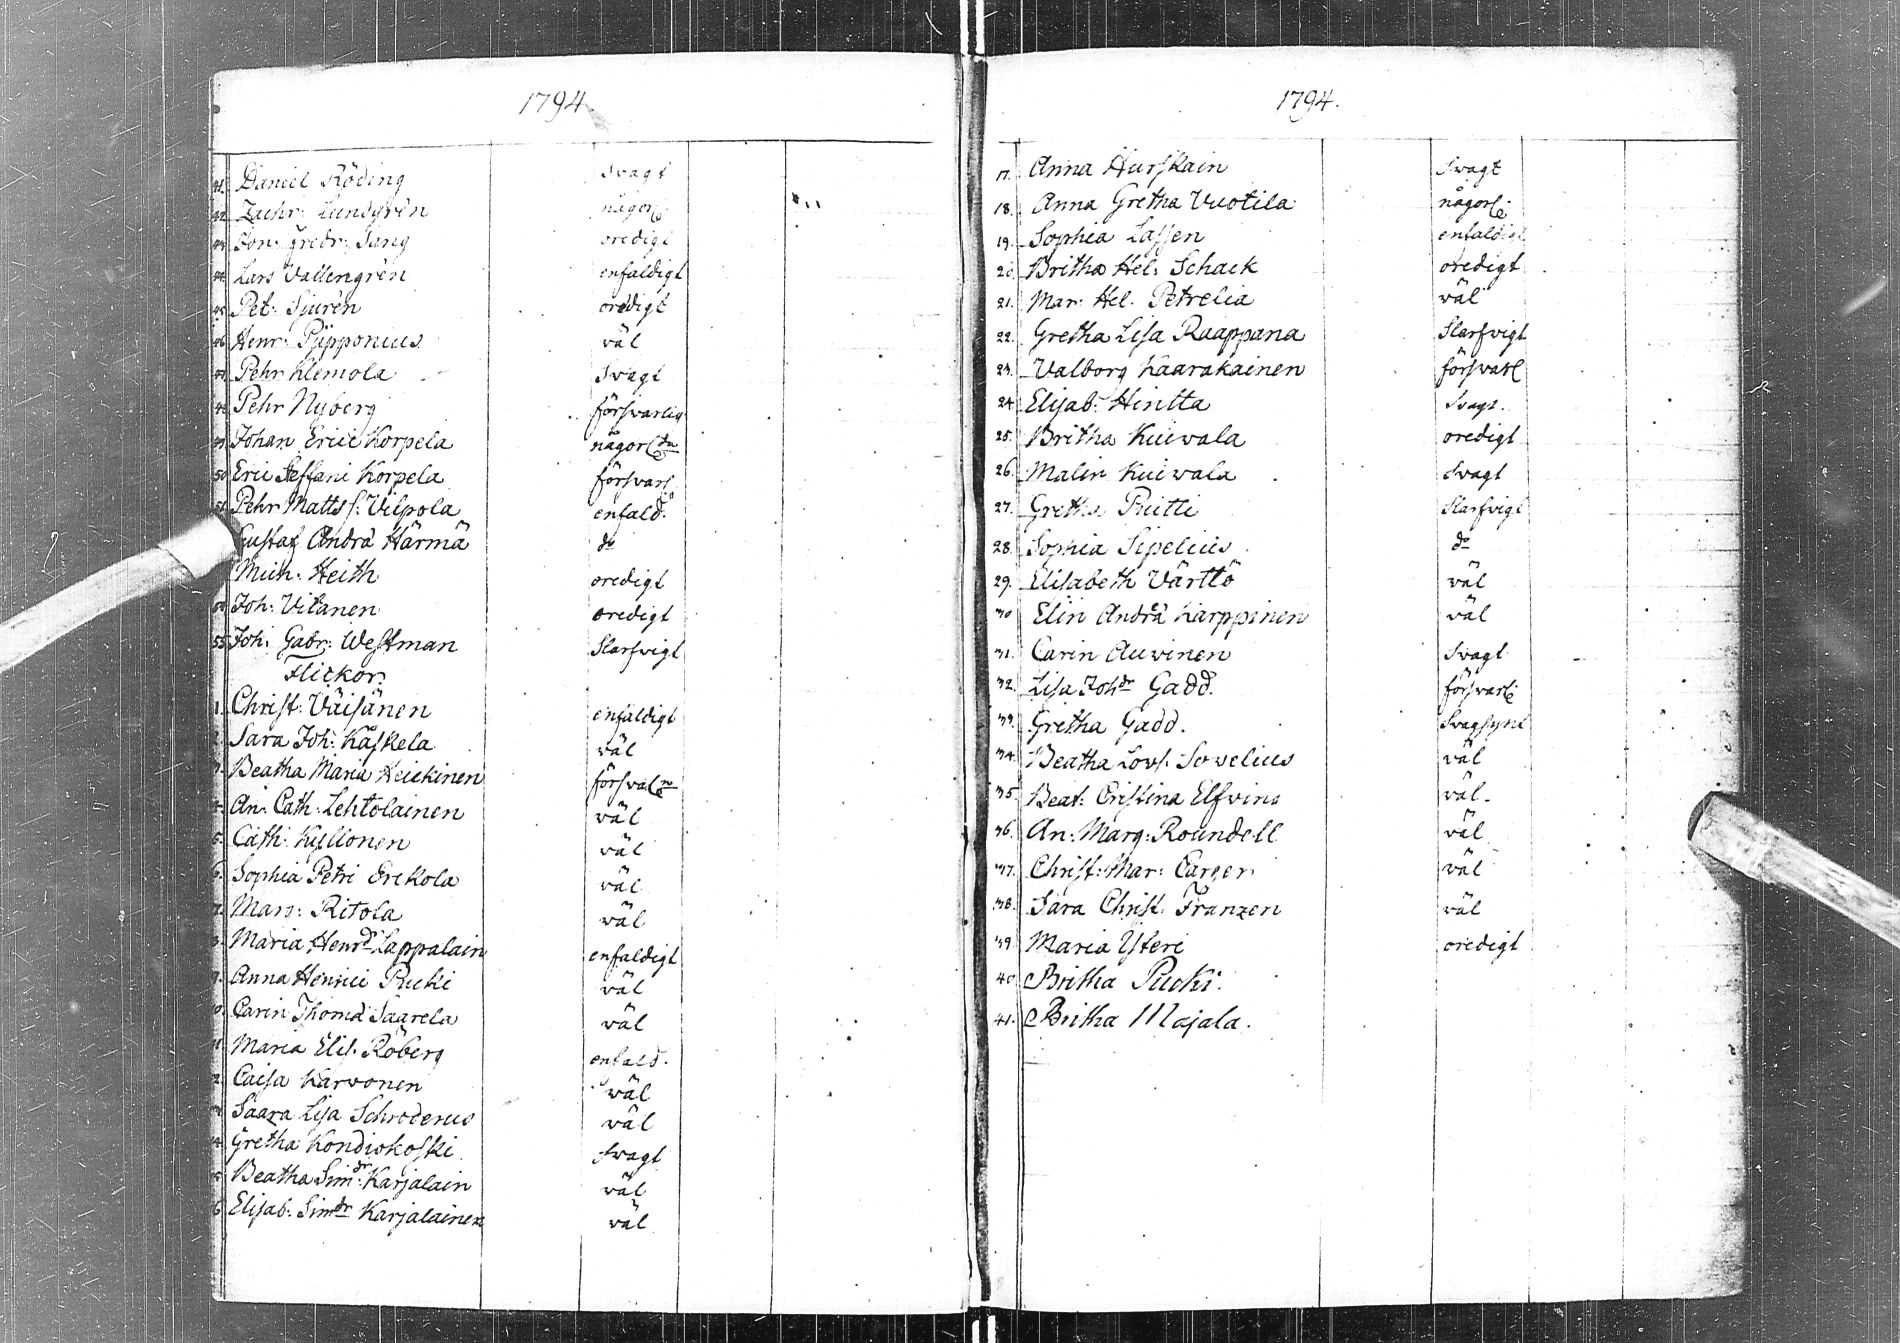 1794
41. Daniel Röding svagt
42. Zachr: Lundgrèn någorl:
43. Jon: Fredr: Sang oredigt
44. Lars Vallengrèn enfaldigt
45. Pet: Sjurèn oredigt
46. Henr: Pipponius väl
47. Pehr Klemola svagt
48. Pehr Nyberg försvarlig
49. Johan Erici Korpela någorl
50. Eric Steffani Korpela försvarl
51. Pehr Matts s: Vilpola enfald:
Gustaf Andrӕ Härmä do
Mich: Heith oredigt
54 Joh: Vitanen oredigt
55 Joh: Gabr: Westman Slarfvigt
Flickor.
1. Christ: Väisänen enfaldigt
2. Sara Joh: Kaskela väl
3. Beatha Maria Heickinen
4. An: Cath: Lehtolainen väl
5. Cath: Kyllönen väl
6. Sophia Petri Erckola väl
7. Marg: Ritola väl
8. Maria Henrdr Lappalain enfaldigt
9. Anna Henrici Pucki väl
10. Carin Thomӕ Saarela väl
11 Maria Elis. Röberg enfald.
12. Caisa Karvonen väl
13 Saara Lisa Schroderus väl
14. Gretha Kondiokoski svagt
15 Beatha Simdr: Karjalain väl
16 Elisab: Simdr Karjalainen väl
1794.
17. Anna Hurskain svagt
18. Anna Gretha Vuotila någorl:
19. Sophia Lassen enfaldigt
20 Britha Hel: Schack oredigt
21. Mar: Hel. Petrelia väl
22. Gretha Lisa Raappana Slarfvigt
23. Valborg Kaarakainen försvarl
24 Elisab: Hintta svagt.
25. Britha Kuivala oredigt
26. Malin Kuivala svagt
27. Gretha Ruitti Slarfvigt
28. Sophia Sipelius do
29. Elisabeth Värttö väl
30 Elin Andrӕ Karppinen väl
31. Carin Auvinen svagt
32. Lisa Johdr Gadd. försvarl:
33. Gretha Gadd. svagsynt
34. Beatha Lovs. Sovelius väl
35 Beat: Cristina Elfving väl.
36. An: Marg: Roundell väl
37. Christ: Mar: Carger väl
38. Sara Christ. Franzen väl
39 Maria Yteri oredigt
40 Britha Pucki.
41. Britha Majala.